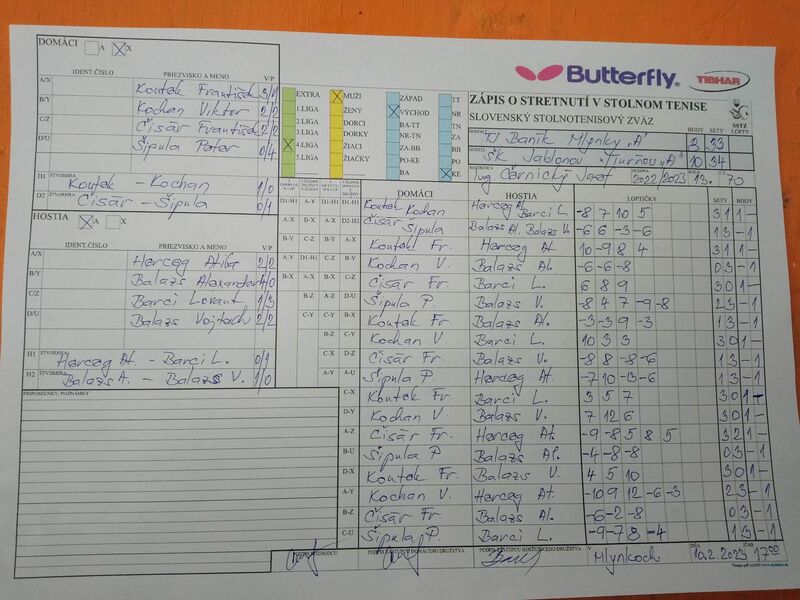 DOMÁCI A X
IDENT.ČÍSLO PRIEZVISKO A MENO V/P
A/X Koutek František 3/1
B/Y Kochan Viktor 2/2
C/Z Čisár František 2/2
D/U Šipula Peter 0/4
D1 ŠTVORHRA Koutek - Kochan 1/0
D2 ŠTVORHRA Čisár - Šipula 0/1
HOSTIA A X
IDENT.ČÍSLO PRIEZVISKO A MENO V/P
A/X Herceg Attila 2/2
B/Y Balazs Alexander 4/0
C/Z Barci Lorant 1/3
D/U Balazs Vojtech 2/2
H1 ŠTVORHRA Herceg At. - Barci L. 0/1
H2 ŠTVORHRA Balazs A. - Balazs V. 1/0
PRIPOMIENKY, POZNÁMKY
EXTRA MUŽI ZÁPAD TT
1.LIGA ŽENY VÝCHOD NR
2.LIGA DORCI BA-TT TN
3.LIGA DORKY NR-TN ZA
4.LIGA ŽIACI ZA-BB BB
5.LIGA ŽIAČKY PO-KE PO
BA KE
Butterfly TIBHAR
ZÁPIS O STRETNUTÍ V STOLNOM TENISE
SLOVENSKÝ STOLNOTENISOVÝ ZVÄZ
SSTZ
DOMÁCI BODY SETY LOPTY
TJ Baník Mlynky "A" 33
ŠK Jablonov n/Turňou "A" 10 34
Ing Černický Jozef 2022/2023 13. 70
DOMÁCI HOSTIA LOPTIČKY SETY BODY
D1-H1 A-Y D1-H1 Koutek Kochan Herceg A. Barci L. -8 7 10 5 3 1 1 -
A-X B-X D2-H2 Čisár Šipula Balazs Al. Balazs V. -6 6 -3 -6 1 3 - 1
B-Y C-Z A-X Koutek Fr. Herceg At. 10 -9 8 4 3 1 1 -
A-Y D1-H1 C-Z B-Y Kochan V. Balazs Al. -6 -6 -8 0 3 - 1
B-X A-X B-X C-Z Čisár Fr. Barci L. 6 8 9 3 0 1 -
B-Z A-Z D-U Šipula P. Balazs V. -8 4 7 -9 -8 2 3 - 1
C-Y B-Y Koutek Fr. Balazs Al. -3 -3 9 -3 1 3 - 1
B-X C-Y Kochan V Barci L. 10 3 3 3 0 1 -
C-X D-Z Čisár Fr. Balazs V. -8 8 -8 -6 1 3 - 1
A-Y A-U Šipula P. Herceg At. -7 10 -3 -6 1 3 - 1
C-X Koutek Fr. Barci L. 3 5 7 3 0 1 -
D-Y Kochan V. Balazs V. 7 12 6 3 0 1 -
A-Z Čisár Fr. Herceg At. -9 -8 5 8 5 3 2 1 -
B-U Šipula P Balazs Al. -4 -8 -8 0 3 - 1
D-X Koutek Fr. Balazs V. 4 5 10 3 0 1 -
A-Y Kochan V. Herceg At. -10 9 12 -6 -3 2 3 - 1
B-Z Čisár Fr. Balazs Al. -6 -2 -8 0 3 - 1
C-U Šipula P. Barci L. -9 -7 8 -4 1 3 - 1
PODPIS ROZHODCU PODPIS ZÁSTUPCU DOMÁCEHO DRUŽSTVA PODPIS ZÁSTUPCU HOSŤUJÚCEHO DRUŽSTVA V Mlynkoch DŇA 10.2.2023 ČAS 17 00